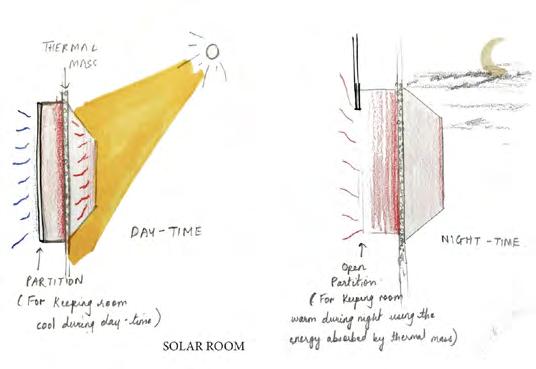 THERMAL
MASS
DAY-TIME
PARTITION
(For Keeping room
cool during day-time)
NIGHT-TIME
Open
Partition
(For Keeping room
warm during night using the
energy absorbed by thermal mass)
SOLAR ROOM